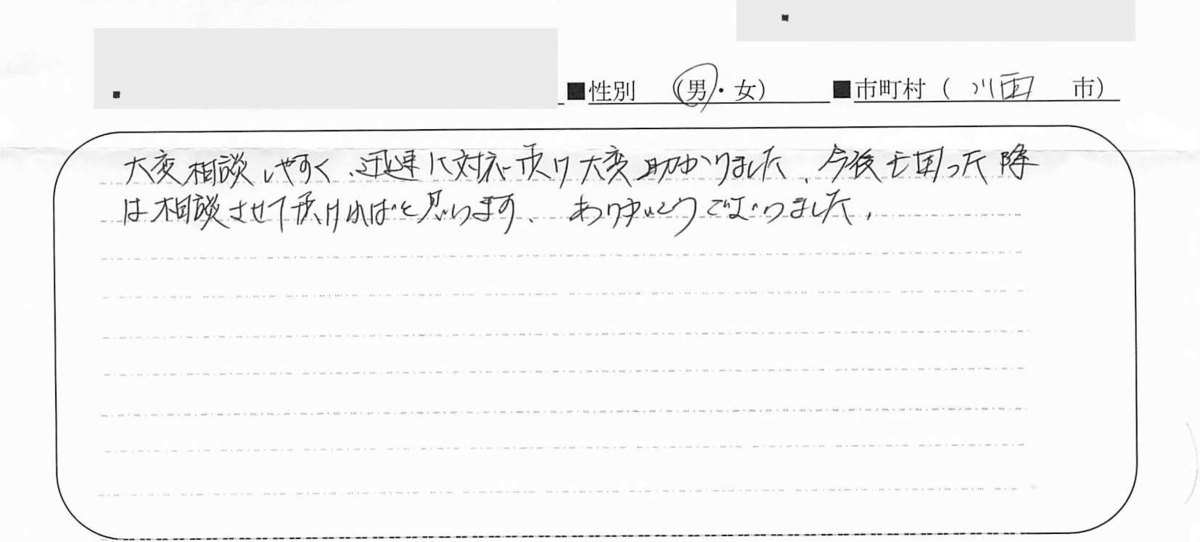 ■性別 (男・女) ■市町村 ( 川西 市)
大変相談しやすく、迅速に対応頂け大変助かりました。今後も困った際
は相談させて頂ければと思います。ありがとうございました。